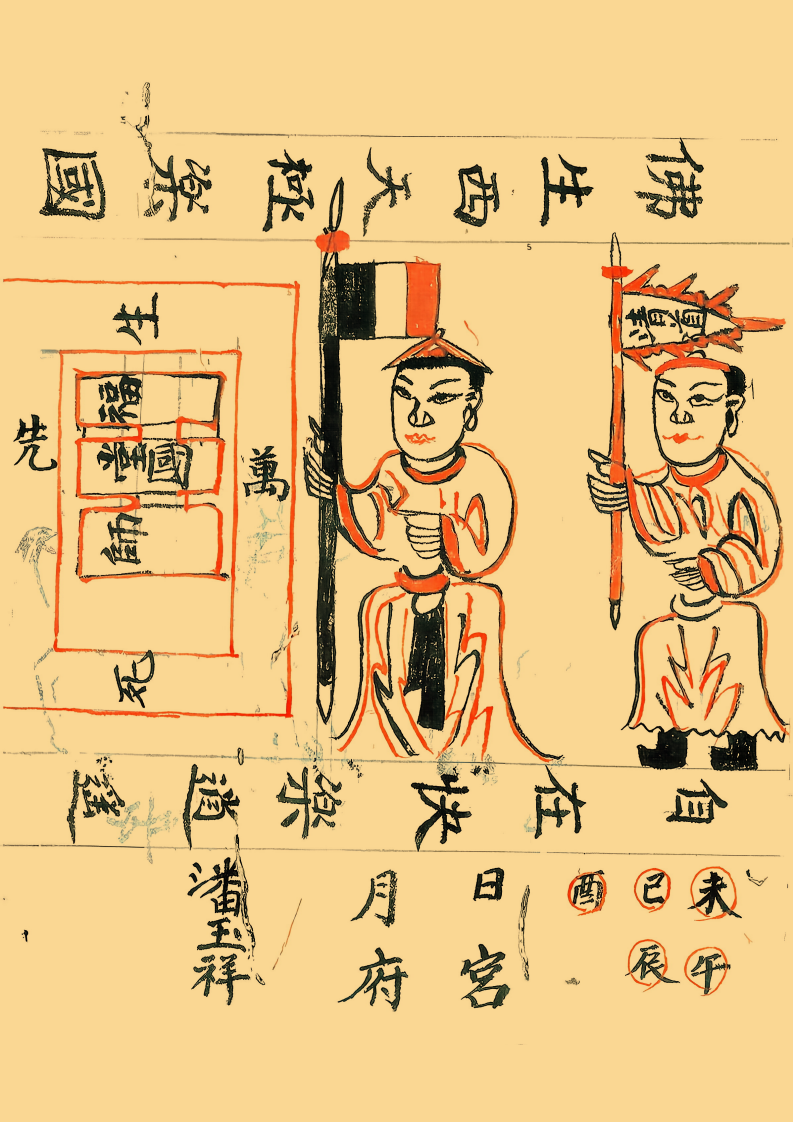 佛生西天極楽國
萬
先
死
國
師
自在快楽道
未午
巳辰
酉
日宮
月府
潘玉祥